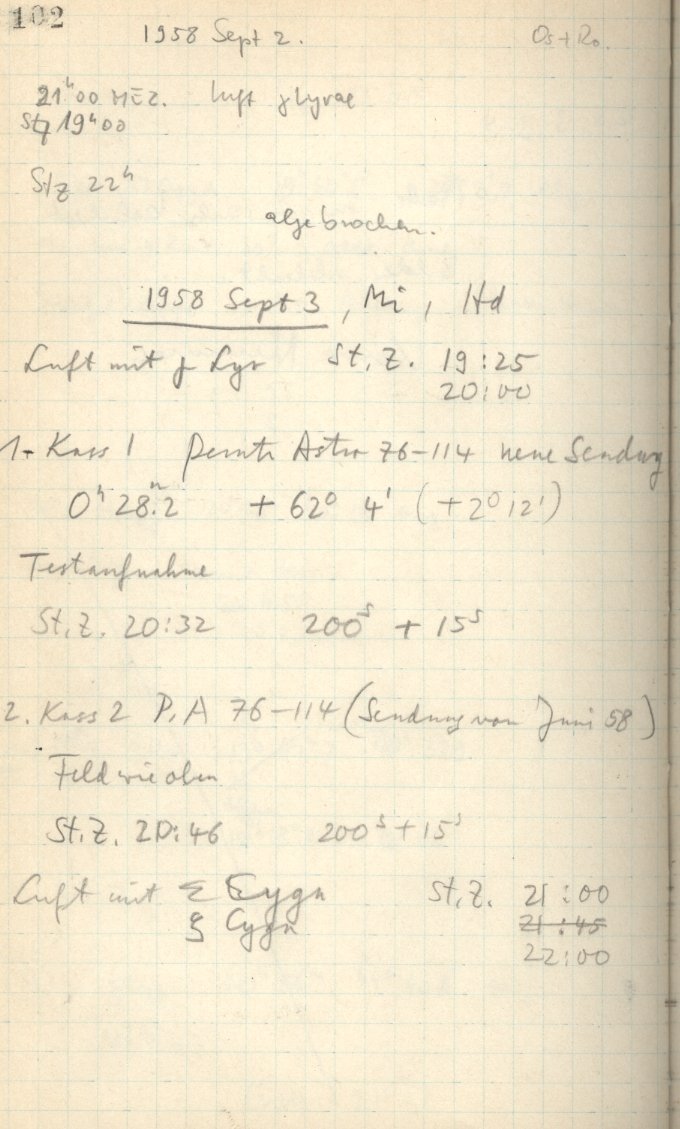 102
1958 Sept 2. Os+Ro.
21ʰ00 MEZ. Luft γ Lyrae
Stz 19ʰ00
Stz 22ʰ
abgebrochen.
1958 Sept 3, Mi, Hd
Luft mit γ Lyr St.Z. 19:25
20:00
1. Kass 1 Astro 76–114 neue Sendung
0ʰ 28.ᵐ2 + 62° 4' (+2° 12')
Testaufnahme
St.Z. 20:32 200ˢ + 15ˢ
2. Kass 2 P.A 76–114 (Sendung von Juni 58)
Feld wie oben
St.Z. 20:46 200ˢ + 15ˢ
Luft mit Cygn St.Z. 21:00
Cygn 21:45
22:00